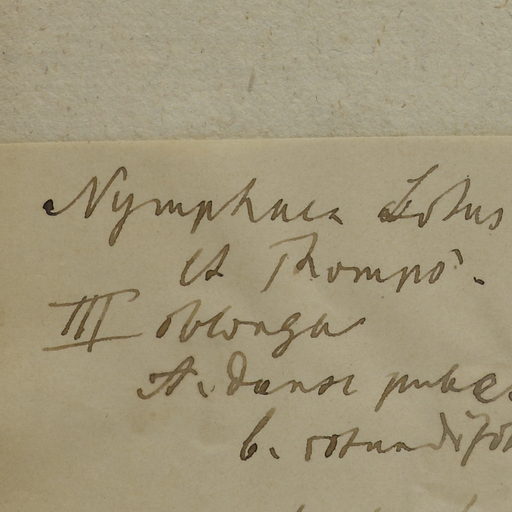 Nymphaea Lotus
et Thomps.
III oblonga
A. dense pubes
b. rotundifol